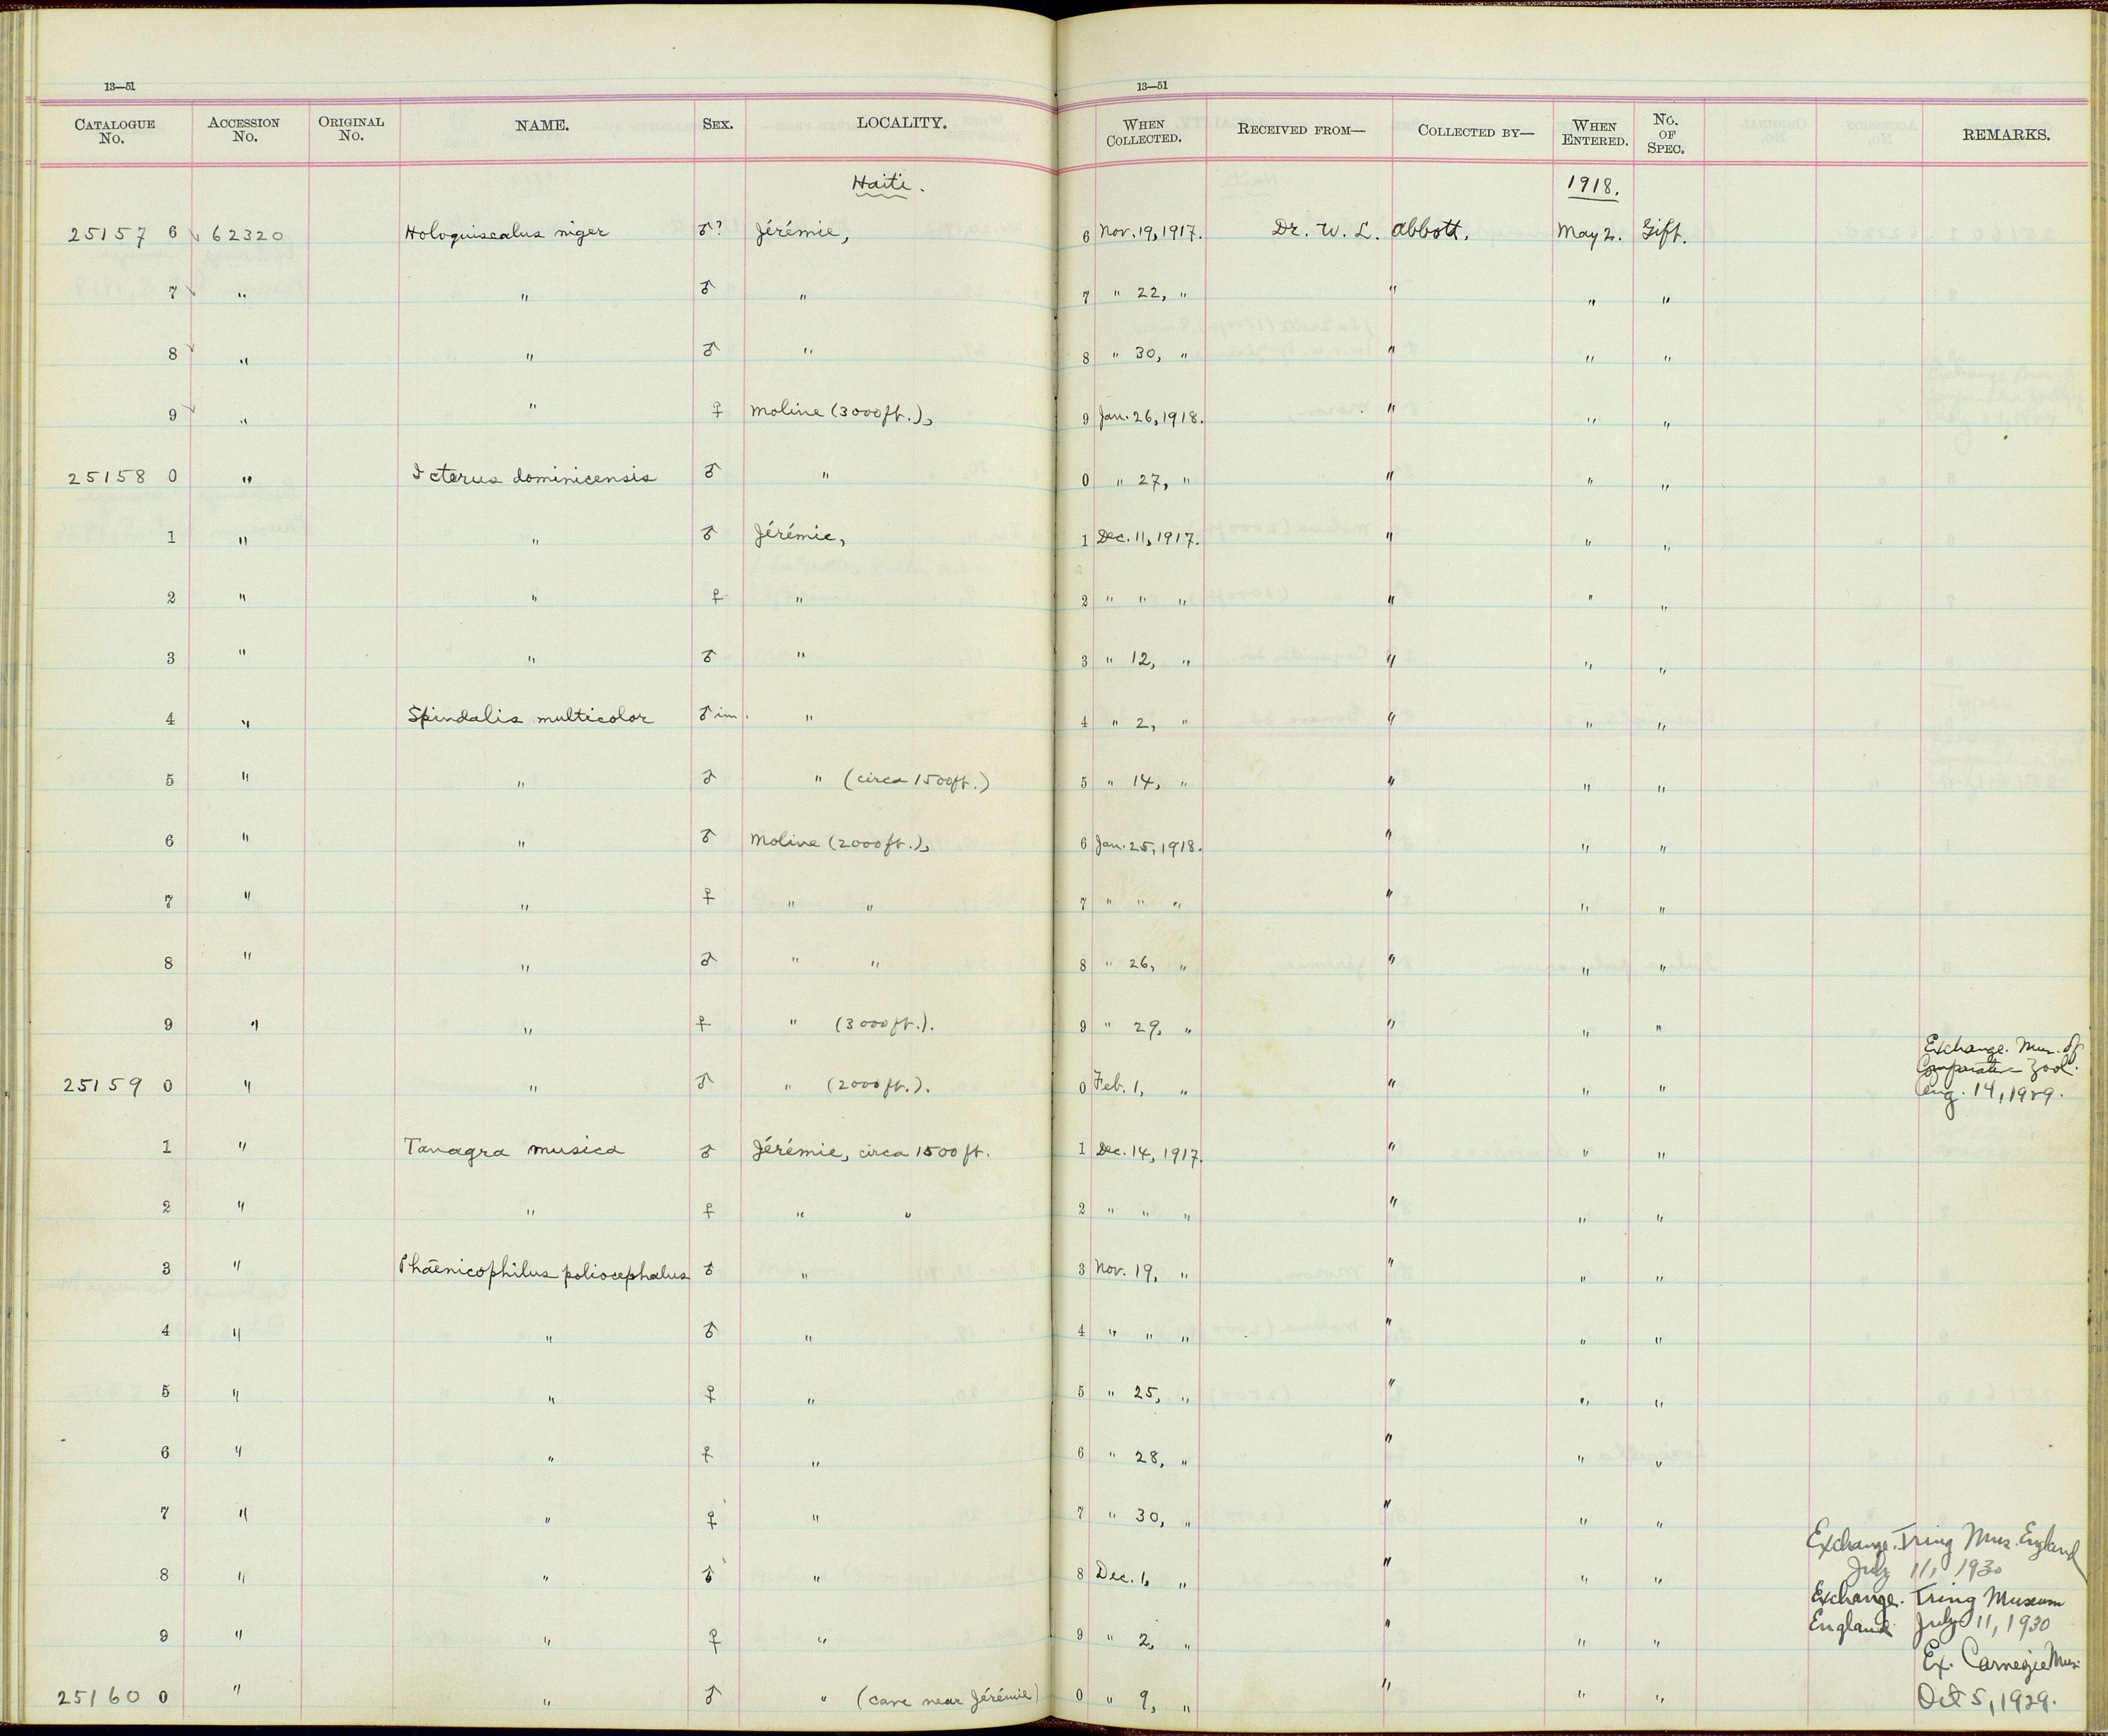 13—51 13—51
CATALOGUE No. ACCESSION No. ORIGINAL No. NAME. SEX. LOCALITY. WHEN COLLECTED. RECEIVED FROM— COLLECTED BY— WHEN ENTERED. No. OF SPEC. REMARKS.
Haiti. 1918.
25157 6 62320 Holoquiscalus niger ♂? Jérémie, 6 Nov. 19, 1917. Dr. W. L. Abbott. May 2. Gift.
7 " " ♂ " 7 " 22, " " " "
8 " " ♂ " 8 " 30, " " " "
9 " " ♀ Moline (3000 ft.), 9 Jan. 26, 1918. " " "
25158 0 " Icterus dominicensis ♂ " 0 " 27, " " " "
1 " " ♂ Jérémie, 1 Dec. 11, 1917. " " "
2 " " ♀ " 2 " " " " " "
3 " " ♂ " 3 " 12, " " " "
4 " Spindalis multicolor ♂ im. " 4 " 2, " " " "
5 " " ♂ " (circa 1500 ft.) 5 " 14, " " " "
6 " " ♂ Moline (2000 ft.), 6 Jan. 25, 1918. " " "
7 " " ♀ " " 7 " " " " " "
8 " " ♂ " " 8 " 26, " " " "
9 " " ♀ " (3000 ft.). 9 " 29, " " " "
Exchange. Mus. of
Comparative Zool.
25159 0 " " ♂ " (2000 ft.). 0 Feb. 1, " " " " Aug. 14, 1929.
1 " Tanagra musica ♂ Jérémie, circa 1500 ft. 1 Dec. 14, 1917. " " "
2 " " ♀ " " 2 " " " " " "
3 " Phaenicophilus poliocephalus ♂ " 3 Nov. 19, " " " "
4 " " ♂ " 4 " " " " " "
5 " " ♀ " 5 " 25, " " " "
6 " " ♀ " 6 " 28, " " " "
7 " " ♀ " 7 " 30, " " " "
Exchange. Tring Mus. England
July 11, 1930
8 " " ♂ " 8 Dec. 1, " " " "
Exchange. Tring Museum
England July 11, 1930
9 " " ♀ " 9 " 2, " " " "
Ex. Carnegie Mus.
25160 0 " " ♂ " (cave near Jérémie) 0 " 9, " " " " Oct 5, 1929.